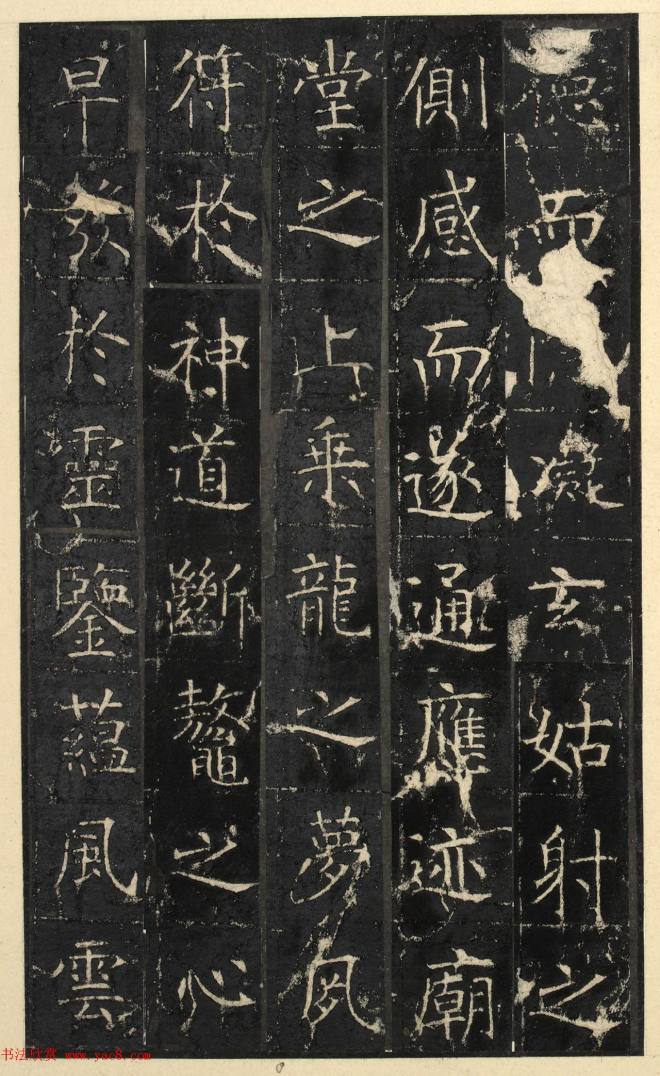 德而凝玄姑射之
側感而遂通應迹廟
堂之上乗龍之夢夙
符於神道斷鼇之心
早於靈鑒蘊風雲
书法欣赏 www.yac8.com